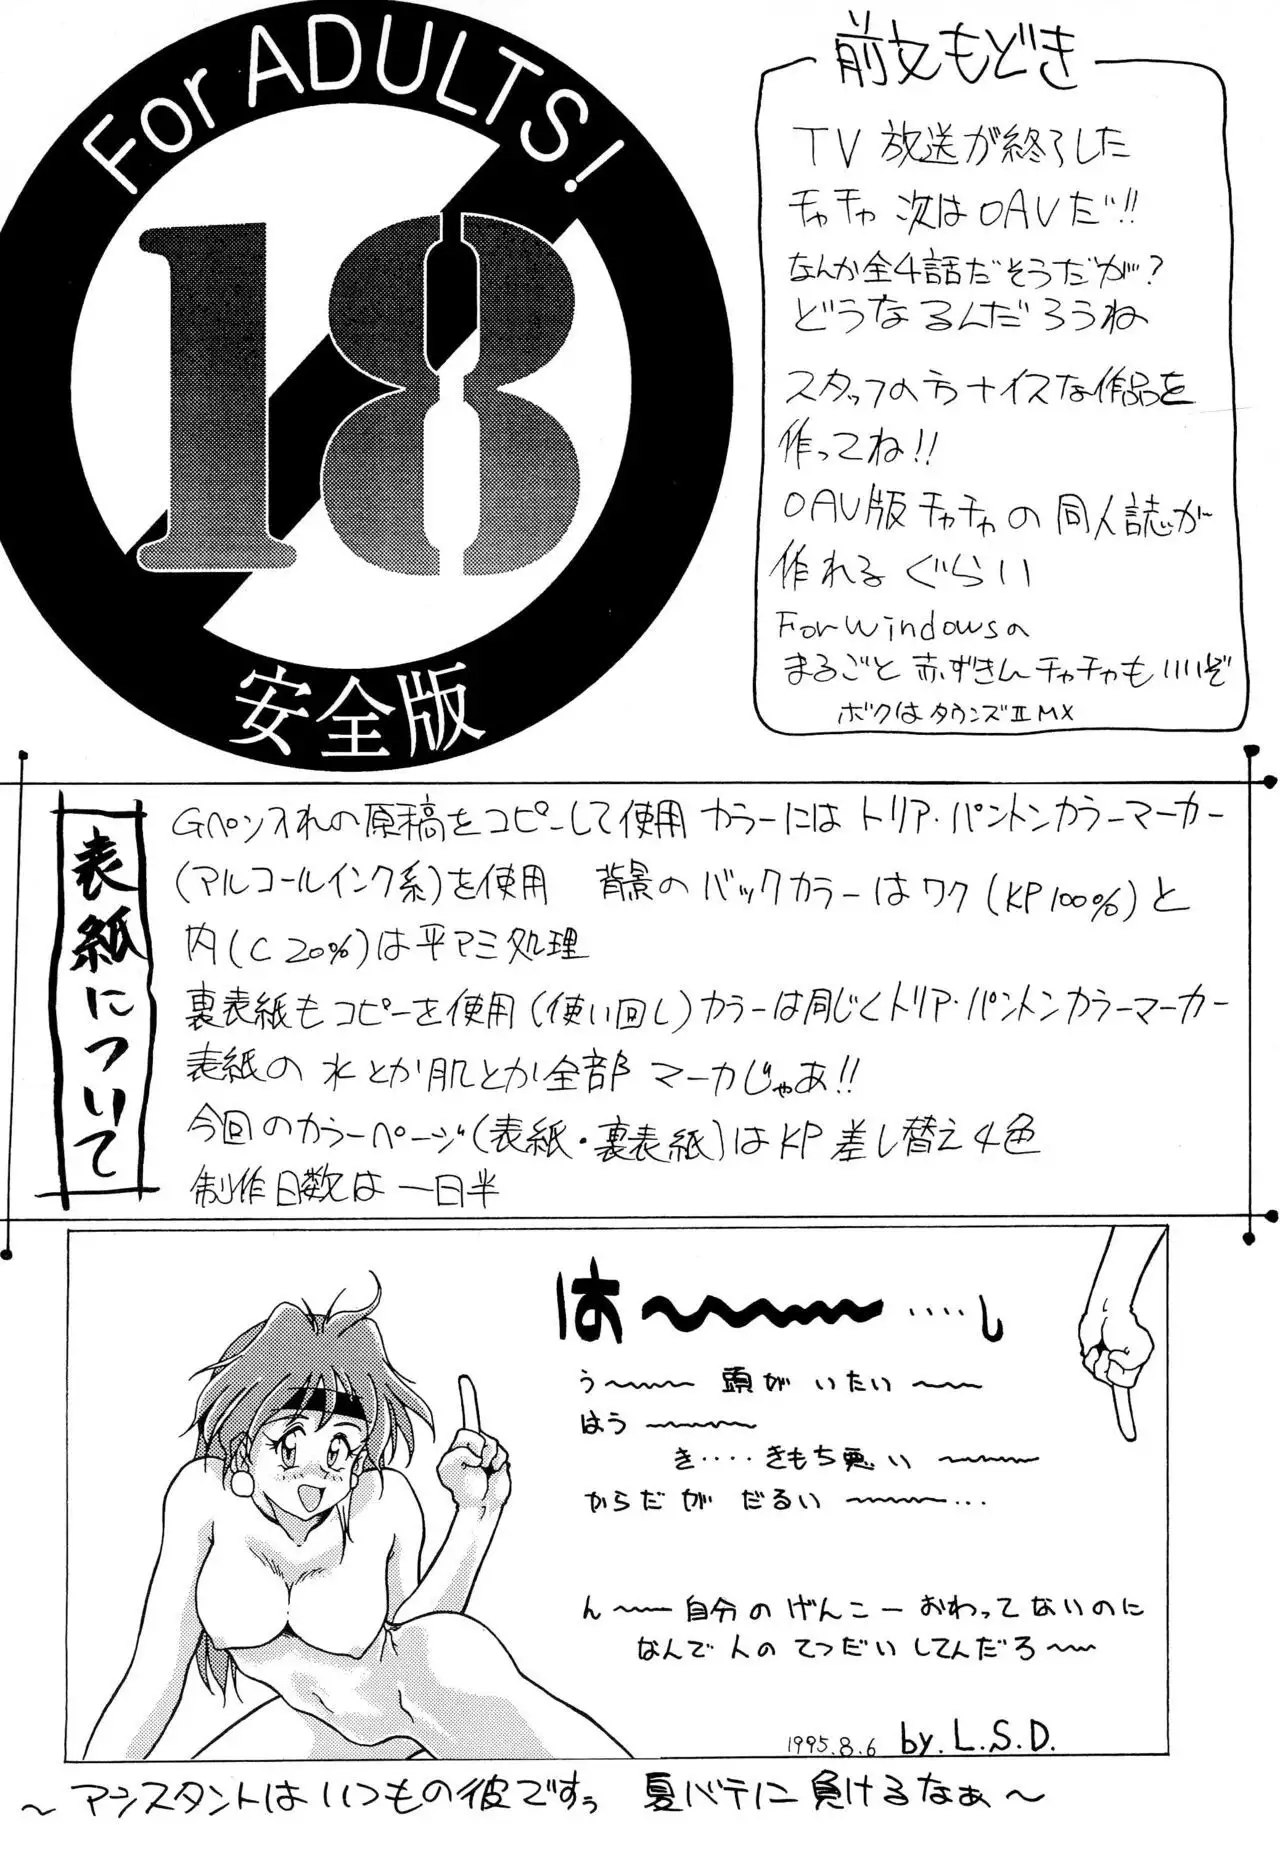 For ADULTS!
18
安全版
前文もどき
TV放送が終了した
チャチャ 次はOAVだ!!
なんか全4話だそうだが?
どうなるんだろうね
スタッフの方ナイスな作品を
作ってね!!
OAV版チャチャの同人誌が
作れるぐらい
For Windowsの
まるごと赤ずきんチャチャもいいぞ
ボクはタウンズⅡMX
表紙について
Gペン入れの原稿をコピーして使用 カラーにはトリア・パントンカラーマーカー
(アルコールインク系)を使用 背景のバックカラーはワク(KP100%)と
内(C20%)は平アミ処理
裏表紙もコピーを使用(使い回し)カラーは同じくトリア・パントンカラーマーカー
表紙の水とか肌とか全部マーカじゃあ!!
今回のカラーページ(表紙・裏表紙)はKP差し替え4色
制作日数は一日半
は〜〜〜‥‥し
う〜〜〜 頭がいたい〜〜〜
はう〜〜〜
き‥‥きもち悪い〜〜〜
からだがだるい〜〜〜…
ん〜〜〜自分のげんこーおわってないのに
なんで人のてつだいしてんだろ〜〜
1995.8.6 by.L.S.D.
〜アシスタントはいつもの彼ですぅ 夏バテに負けるなぁ〜